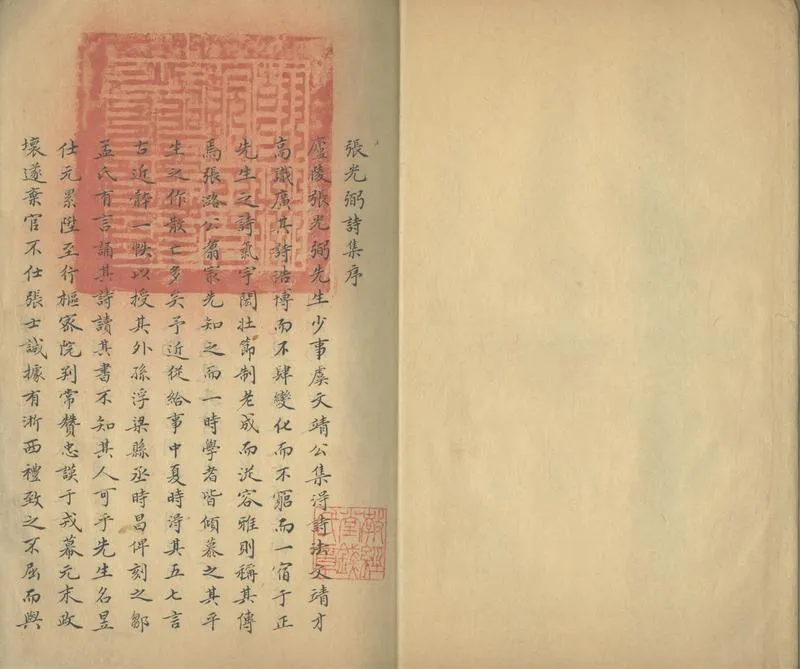 張光弼詩集序
廬陵張光弼先生少事虞文靖公集得詩法文靖才
高識廣其詩浩博而不肆變化而不窮而一宿于正
先生之詩氣宇閎壯節制老成而從容雅則稱其傳
馬張潞公翥家先知之而一時學者皆傾慕之其平
生之作散亡多矣予近從給事中夏時得其五七言
古近體一帙以授其外孫浮梁縣丞時昌俾刻之鄒
孟氏有言誦其詩讀其書不知其人可乎先生名昱
仕元累陞至行樞密院判常贊忠謨于戎幕元末政
壞遂棄官不仕張士誠據有浙西禮致之不屈而與